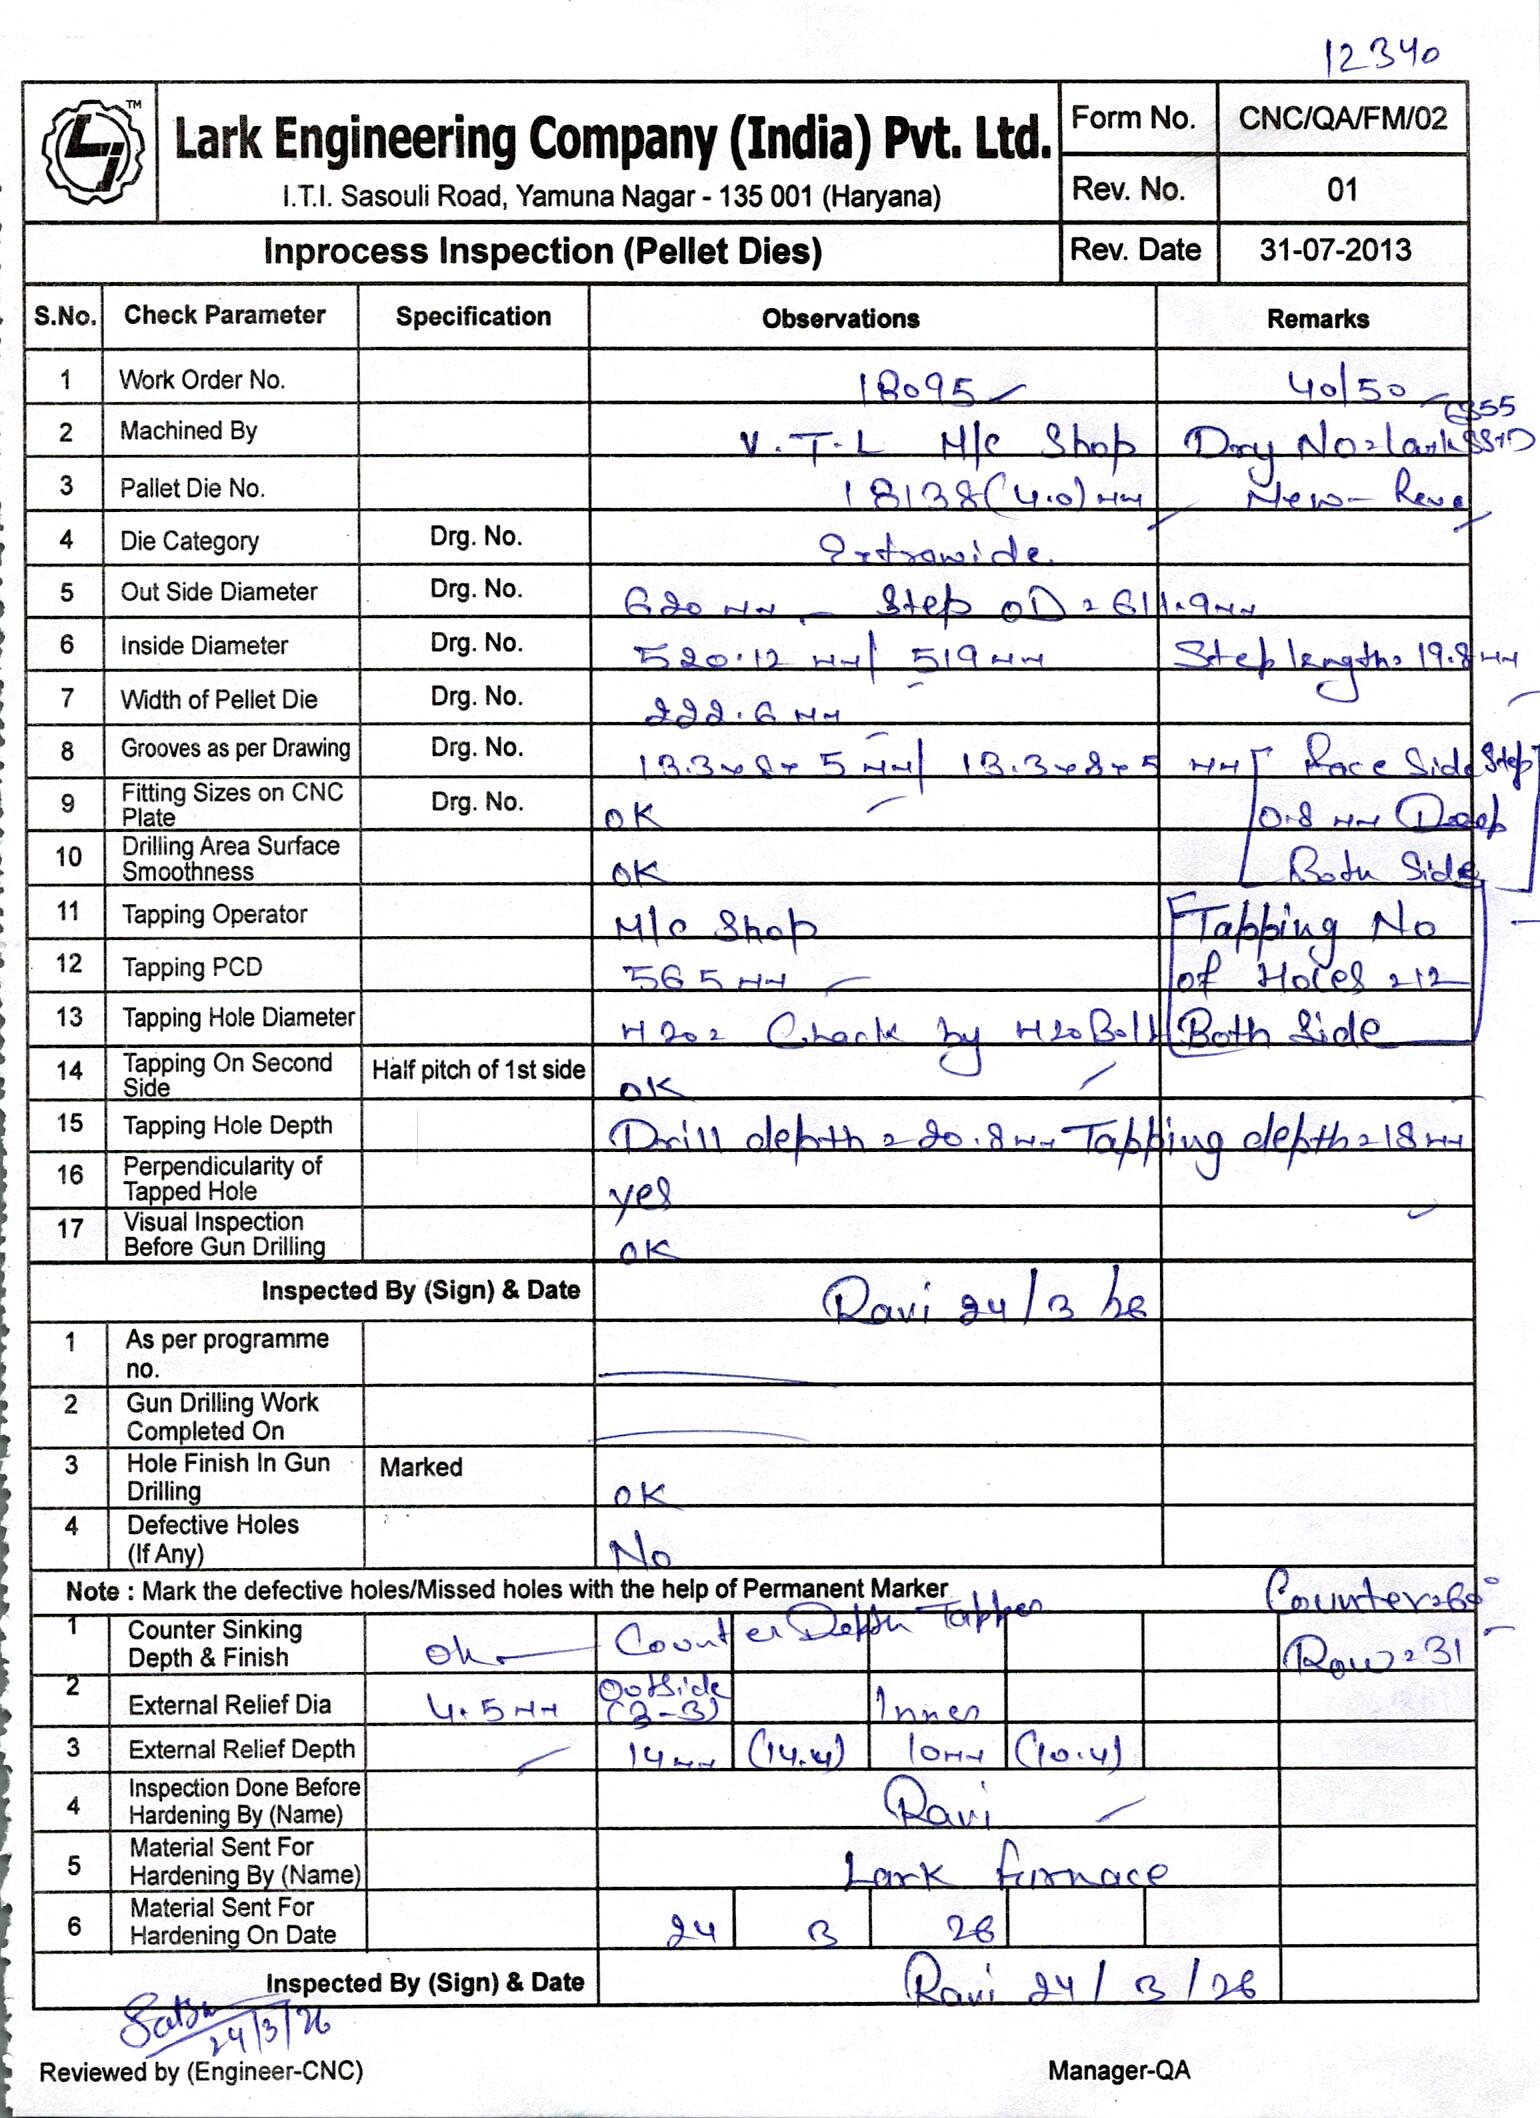 12340
TM
Lark Engineering Company (India) Pvt. Ltd.
I.T.I. Sasouli Road, Yamuna Nagar - 135 001 (Haryana)
Form No. CNC/QA/FM/02
Rev. No. 01
Inprocess Inspection (Pellet Dies) Rev. Date 31-07-2013
S.No. Check Parameter Specification Observations Remarks
1 Work Order No. 18095 40/50
2 Machined By V.T.L M/c Shop Drg No = lark
3 Pallet Die No. 18138 (4.0) mm New-
4 Die Category Drg. No. Extrawide
5 Out Side Diameter Drg. No. 620 mm - Step OD = 611.9mm
6 Inside Diameter Drg. No. 520.12 mm / 519 mm Step length = 19.8 mm
7 Width of Pellet Die Drg. No. 222.6 mm
8 Grooves as per Drawing Drg. No. 13.3x8x5 mm / 13.3x8x5 mm [ Race Side Step
9 Fitting Sizes on CNC Plate Drg. No. OK 0.8 mm Deep
10 Drilling Area Surface Smoothness OK Both Side ]
11 Tapping Operator M/c Shop [ Tapping No
12 Tapping PCD 565 mm of Holes = 12
13 Tapping Hole Diameter M20 = Check by M20 Bolt Both Side ]
14 Tapping On Second Side Half pitch of 1st side OK
15 Tapping Hole Depth Drill depth = 20.8mm Tapping depth = 18 mm
16 Perpendicularity of Tapped Hole yes
17 Visual Inspection Before Gun Drilling OK
Inspected By (Sign) & Date Ravi 24/3/26
1 As per programme no.
2 Gun Drilling Work Completed On
3 Hole Finish In Gun Drilling Marked OK
4 Defective Holes (If Any) No
Note : Mark the defective holes/Missed holes with the help of Permanent Marker Counter = 60°
1 Counter Sinking Depth & Finish Ok Counter Depth Tapper Row = 31
2 External Relief Dia 4.5mm Outside (3-3) Inner
3 External Relief Depth 14mm (14.4) 10mm (10.4)
4 Inspection Done Before Hardening By (Name) Ravi
5 Material Sent For Hardening By (Name) Lark furnace
6 Material Sent For Hardening On Date 24 3 26
Inspected By (Sign) & Date Ravi 24/3/26
24/3/26
Reviewed by (Engineer-CNC) Manager-QA